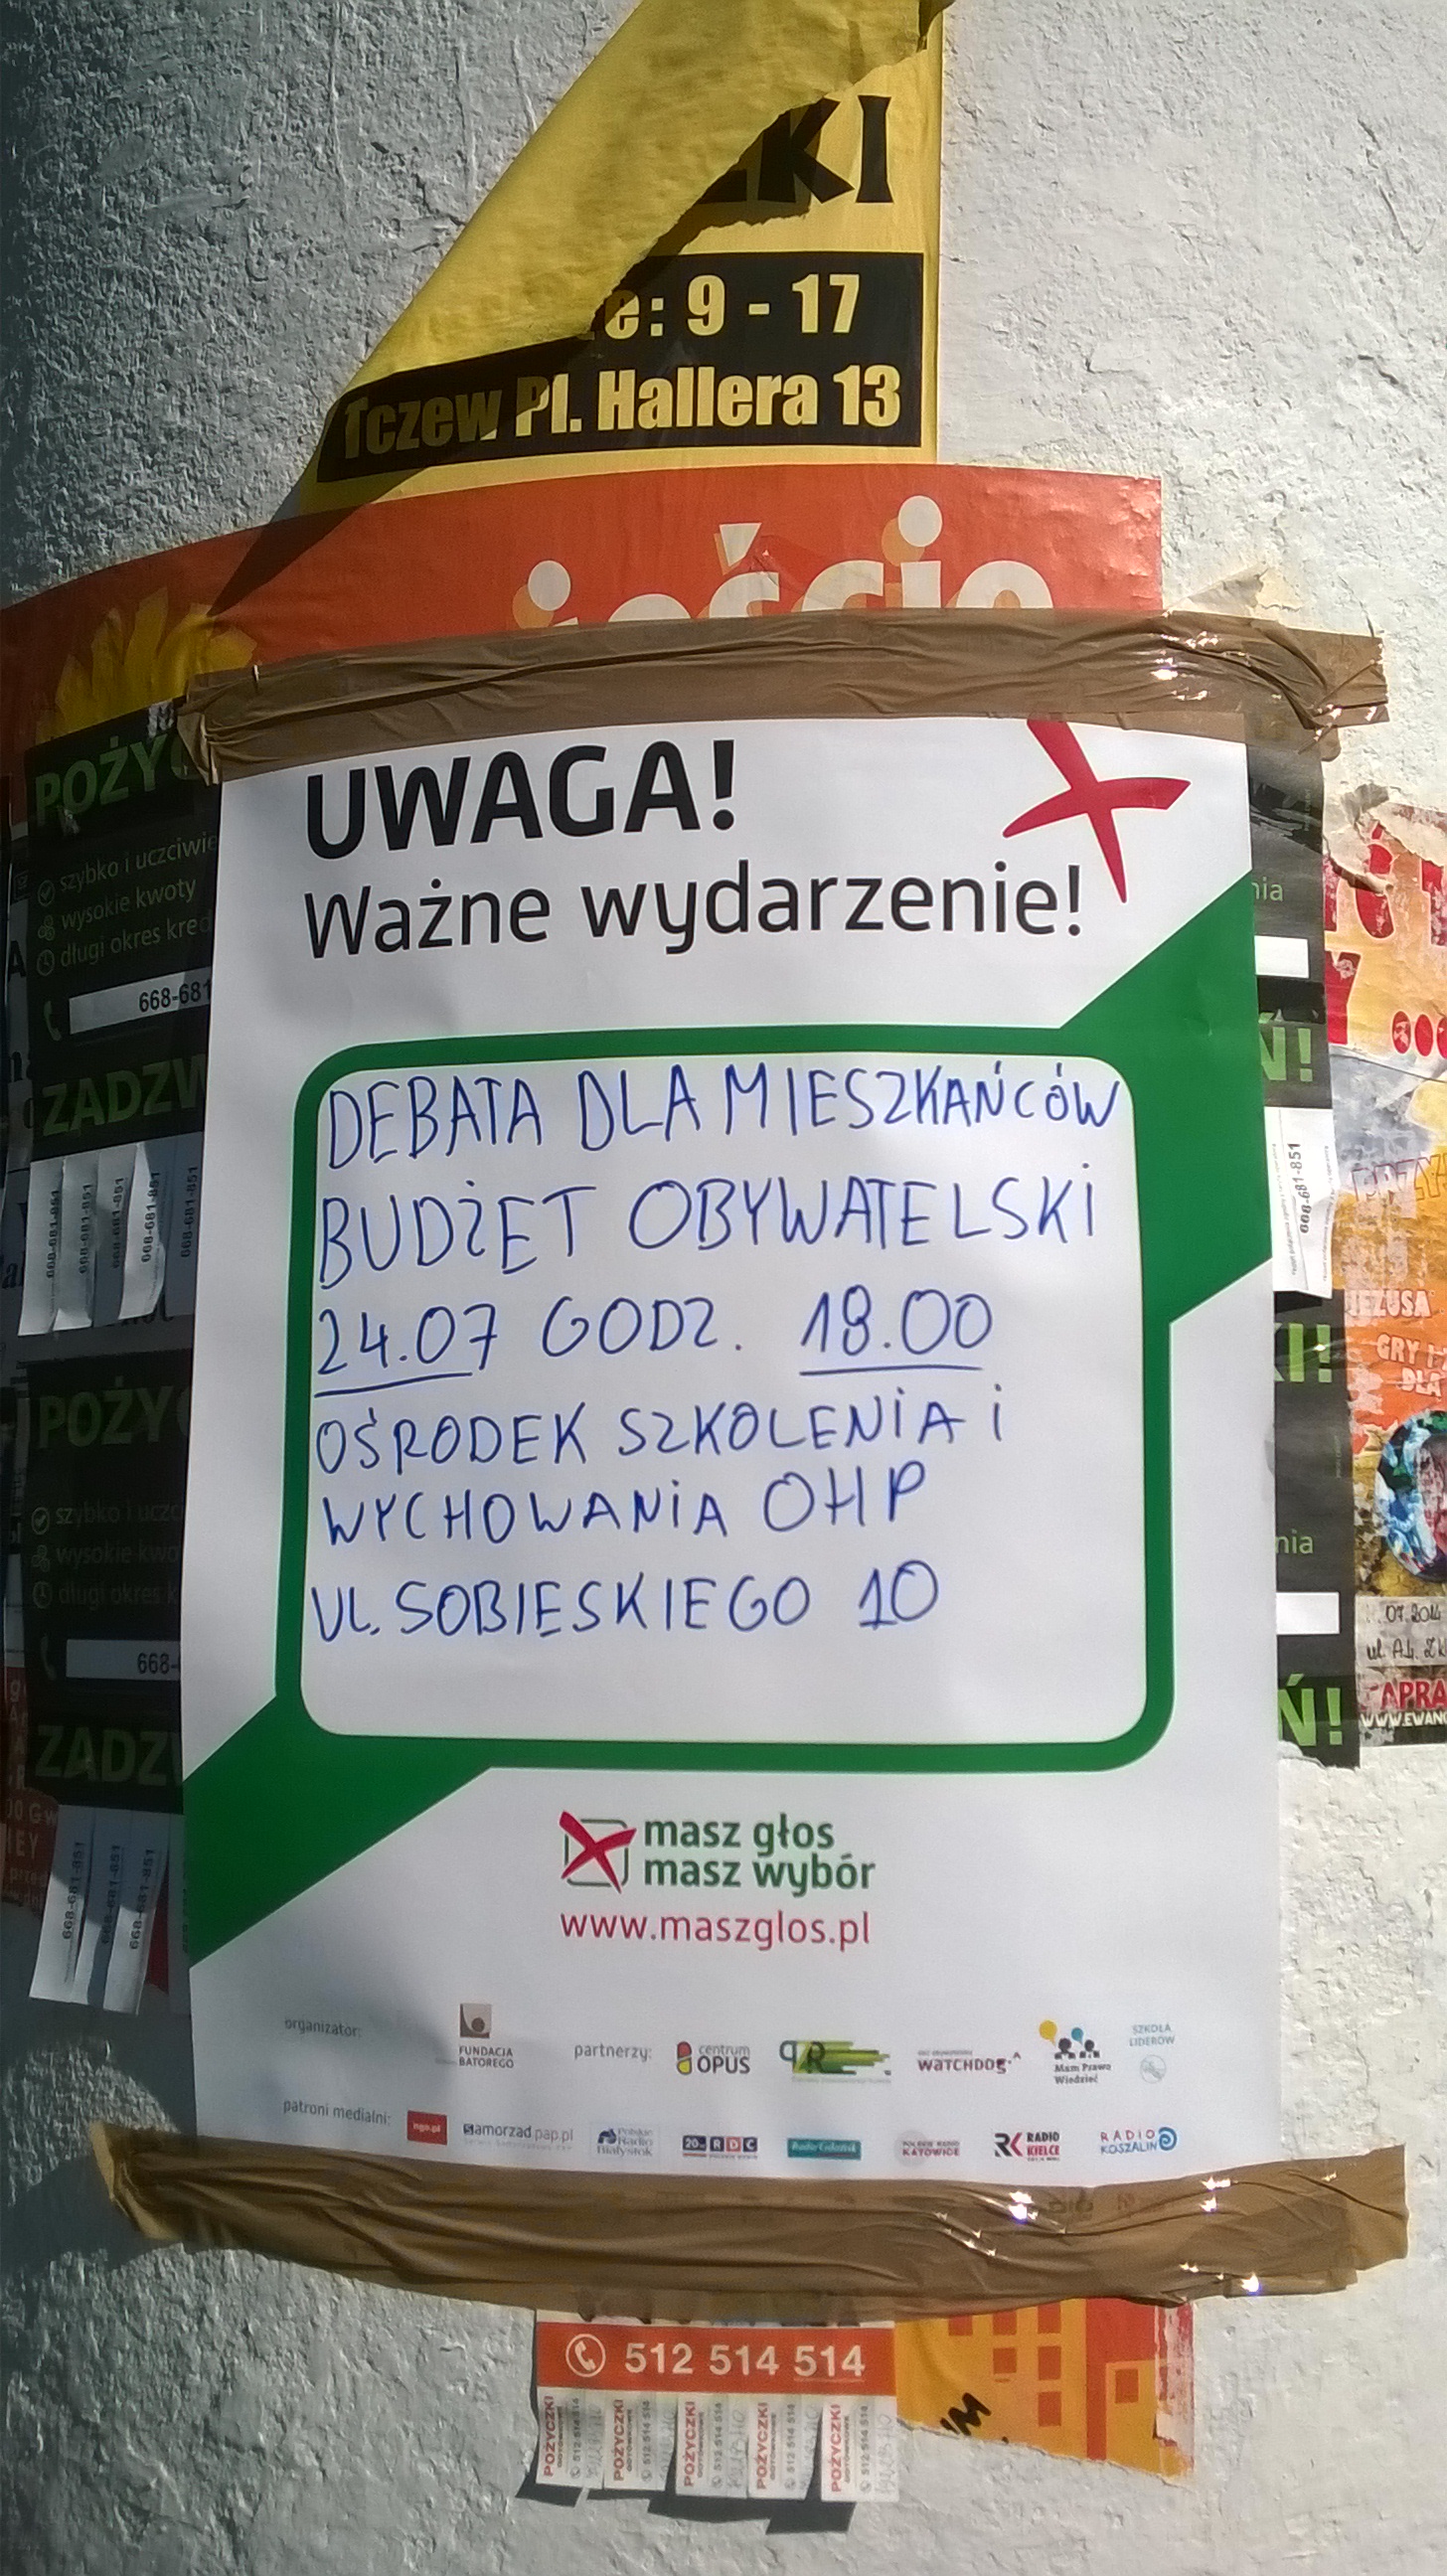 KI
e: 9 - 17
Tczew Pl. Hallera 13
UWAGA!
Ważne wydarzenie!
DEBATA DLA MIESZKAŃCÓW
BUDŻET OBYWATELSKI
24.07 GODZ. 18.00
OŚRODEK SZKOLENIA I
WYCHOWANIA OHP
UL. SOBIESKIEGO 10
masz głos
masz wybór
www.maszglos.pl
organizator:
FUNDACJA
BATOREGO
partnerzy:
centrum
OPUS
WATCHDOG
Mam Prawo
Wiedzieć
SZKOŁA
LIDERÓW
patroni medialni:
ngo.pl
samorzad.pap.pl
Polskie
Radio
Białystok
RDC
Radio Gdańsk
POLSKIE RADIO
KATOWICE
RADIO
KIELCE
RADIO
KOSZALIN
POŻYC
szybko i uczciwie
wysokie kwoty
długi okres kred
668-681
ZADZW
668-681-851
668-681-851
668-681-851
668-681-851
668-681-851
POŻY
szybko i uczc
wysokie kwo
długi okres k
668-
ZADZ
668-681-851
668-681-851
668-681-851
nia
Ń!
668-681-851
KI!
nia
Ń!
JEZUSA
GRY I
DLA
07.2014
APRA
WWW.EWANG
512 514 514
POŻYCZKI
GOTÓWKOWE
512 514 514
POŻYCZKI
GOTÓWKOWE
512 514 514
POŻYCZKI
GOTÓWKOWE
512 514 514
POŻYCZKI
GOTÓWKOWE
512 514 514
POŻYCZKI
GOTÓWKOWE
512 514 514